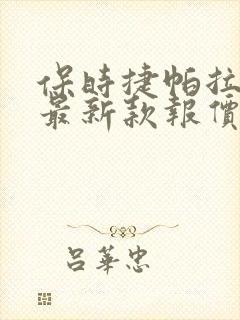 保時捷帕拉
最新款報價
呂華忠